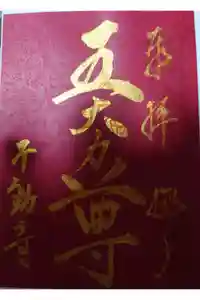 奉拝
五大力尊
不動寺